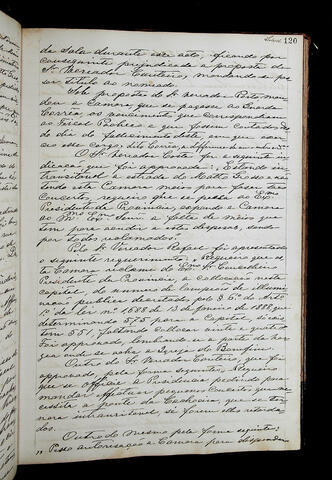 120
da Sala durante esse acto, ficando por
conseguinte prejudicada a proposta do
Sr. Vereador Monteiro, mandando-se pas
sar titulo ao nomeado.
Sob proposta do Sr. Veread. Pinto man
dou a Camara que se pagasse ao Guarda
Corrêa os vencimentos que correspondiam
ao Fiscal Pacheco e que fossem contados
do dia do fallecimento deste, em que
a esse cargo, dito Corrêa,
O Sr. Vereador Costa fez a seguinte in
dicação que foi approvada: Estando in
transitavel a estrada do Matto Grosso e não
tendo esta Camara meios para fazer taes
concertos, requeiro que se peça ao Exmo
Presidente da Provincia, expondo a Camara
ao mesmo Exmo Senr a falta de meios que
tem para acudir a estas despezas, sendo
por todos reclamados.
Pelo Sr. Vereador Rafael foi apresentado
o seguinte requerimento: Requeiro que es
ta Camara reclame do Exmo Sr. Conselheiro
Presidente da Provincia, a collocação nesta
capital do numero de lampeões de illumi
nação publica decretados pelo § 6º do Artº
1º da lei nº 1688 de de Janeiro de 1886 que
determinando 575 para a Capital, só exis
tem 551, faltando collocar vinte e quatro.
Foi approvado, lembrando-se a parte da
onde se acha a Igreja do Bomfim.
Outro do Sr. Vereador Monteiro, que foi
approvado pela forma seguinte: Requeiro
que se officie á Presidencia pedindo para
mandar effectuar pequenos concertos que ne
cessita a ponte da Cachoeira, que se tor
nará intransitavel, si forem elles retarda
dos.
Outro do mesmo pela forma seguinte:
"Peço autorisação a Camara para dispender